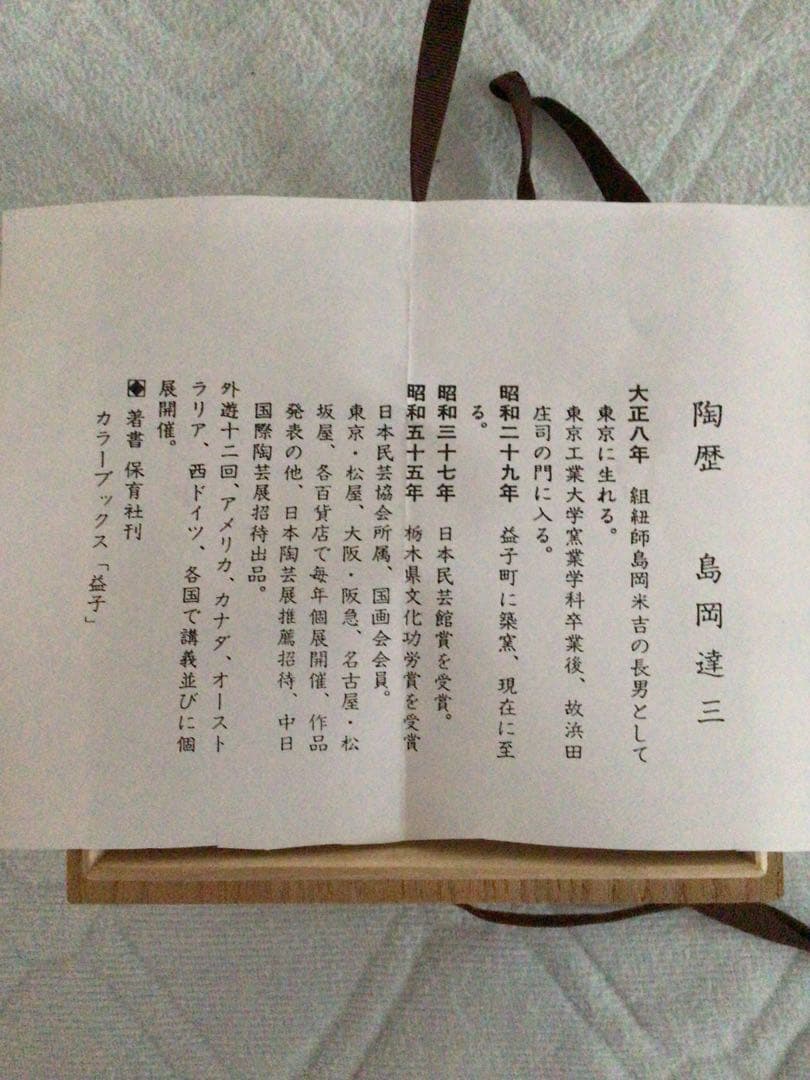 陶歴　島岡達三
大正八年　組紐師島岡米吉の長男として
東京に生れる。
東京工業大学窯業学科卒業後、故浜田
庄司の門に入る。
昭和二十九年　益子町に築窯、現在に至
る。
昭和三十七年　日本民芸館賞を受賞。
昭和五十五年　栃木県文化功労賞を受賞
日本民芸協会所属、国画会会員。
東京・松屋、大阪・阪急、名古屋・松
坂屋、各百貨店で毎年個展開催、作品
発表の他、日本陶芸展推薦招待、中日
国際陶芸展招待出品。
外遊十二回、アメリカ、カナダ、オースト
ラリア、西ドイツ、各国で講義並びに個
展開催。
◈ 著書 保育社刊
カラーブックス「益子」